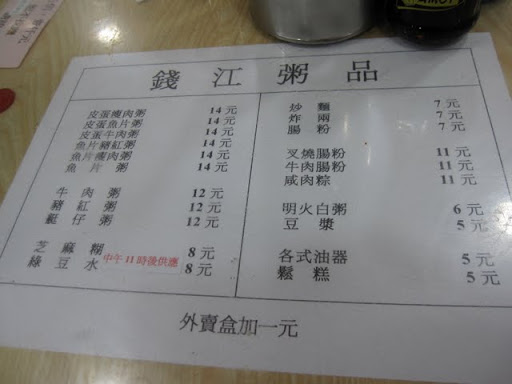 錢江粥品
皮蛋瘦肉粥 14元
皮蛋魚片粥 14元
皮蛋牛肉粥 14元
魚片豬紅粥 14元
魚片瘦肉粥 14元
魚片粥 14元
牛肉粥 12元
豬紅粥 12元
艇仔粥 12元
芝麻糊 8元
綠豆水 8元
中午11時後供應
炒麵 7元
炸兩 7元
腸粉 7元
叉燒腸粉 11元
牛肉腸粉 11元
咸肉粽 11元
明火白粥 6元
豆漿 5元
各式油器 5元
鬆糕 5元
外賣盒加一元